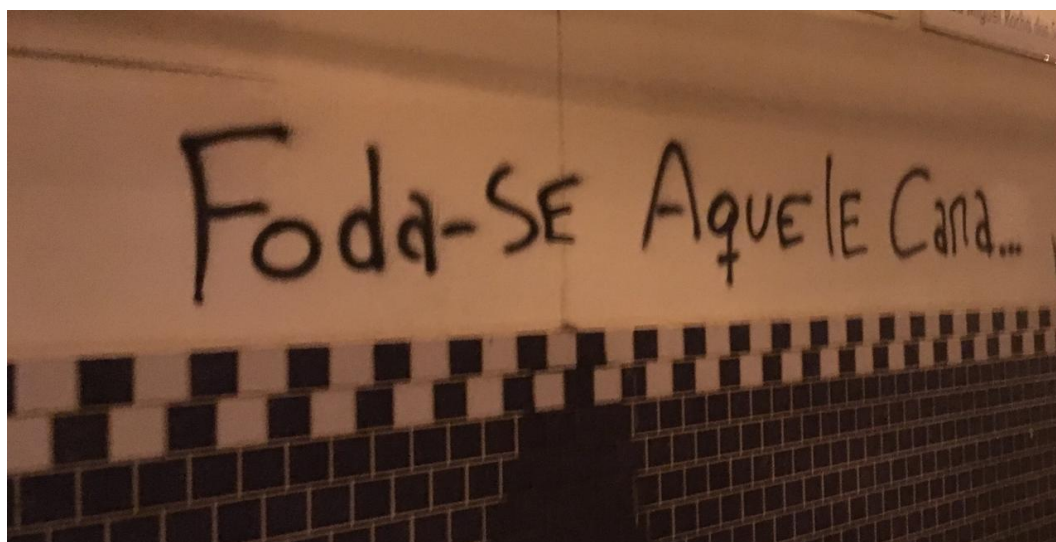 Foda-SE AquelE Cana...